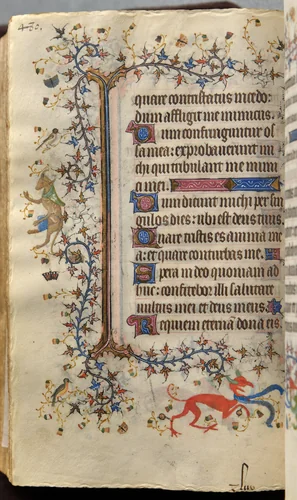 430.
quare contristatus incedo:
dum affligit me inimicus.
Dum confringuntur os
sa mea: exprobaverunt mi
chi qui tribulant me inimi
ci mei.
Dum dicunt michi per sin
gulos dies: ubi est deus tuus.
Quare tristis es anima me
a: et quare conturbas me.
Spera in deo quoniam ad
huc confitebor illi salutare
vultus mei et deus meus.
Requiem eternam dona eis.